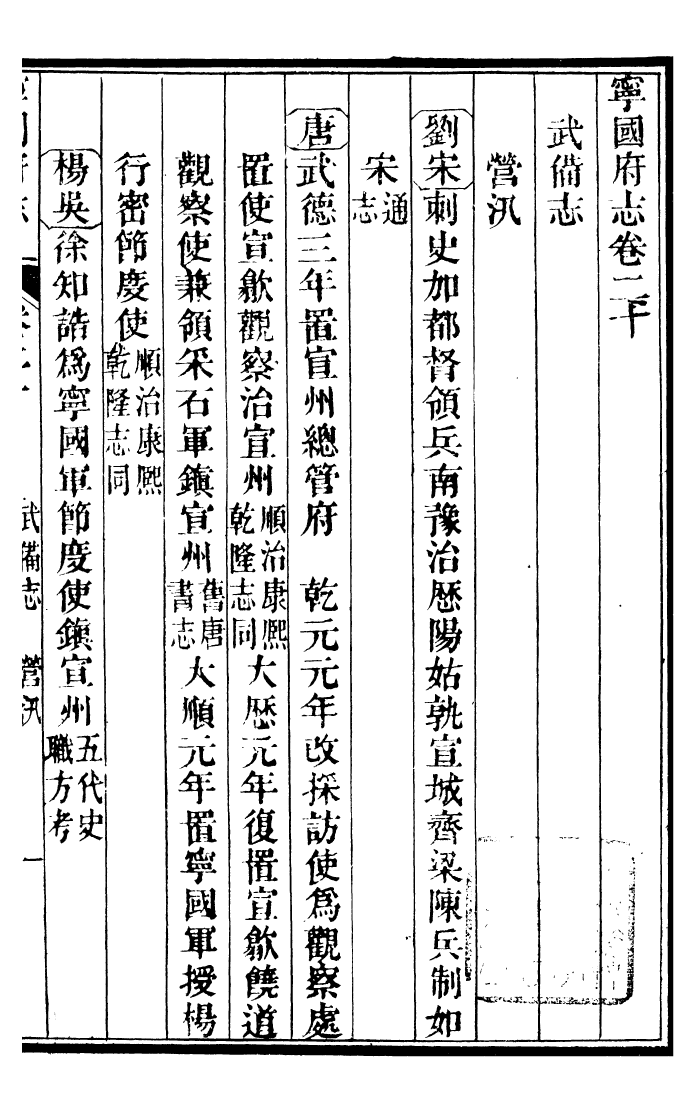 寧國府志卷二十
武僃志
營汛
劉宋刺史加都督領兵南豫治歷陽姑孰宣城齊梁陳兵制如
宋通志
唐武德三年置宣州總管府　乾元元年改採訪使爲觀察處
置使宣歙觀察治宣州順治康熙乾隆志同大歷元年復置宣歙饒道
觀察使兼領采石軍鎭宣州舊唐書志大順元年置寧國軍授楊
行密節度使順治康熙乾隆志同
楊吳徐知誥爲寧國軍節度使鎭宣州五代史職方考
武備志　營汛　一